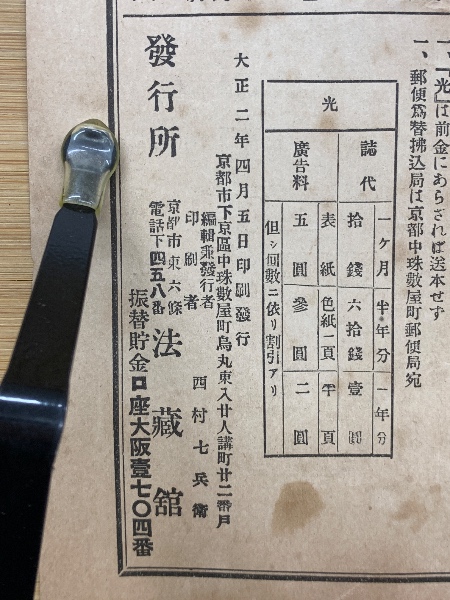 一、『光』は前金にあらざれば送本せず
一、郵便爲替拂込局は京都中珠數屋町郵便局宛
光
誌代
一ケ月 半年分 一年分
拾錢 六拾錢 壹圓
廣告料
表紙 色紙一頁 半頁
五圓 參圓 二圓
但シ囘數ニ依リ割引アリ
大正二年四月五日印刷發行
京都市下京區中珠數屋町烏丸東入廿人講町廿二番戸
編輯兼發行者
印刷者
西村七兵衛
發行所
京都市東六條
電話下四五八番
法藏館
振替貯金口座大阪壹七〇四番